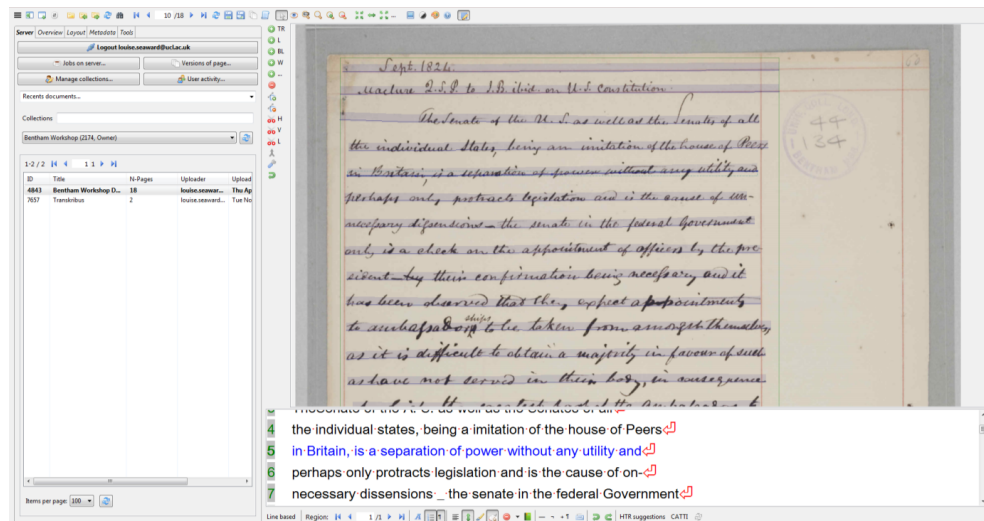 10 /18
Server Overview Layout Metadata Tools
Logout louise.seaward@ucl.ac.uk
Jobs on server...
Versions of page...
Manage collections...
User activity...
Recents documents...
Collections
Bentham Workshop (2174, Owner)
1-2 / 2 1 1
ID Title N-Pages Uploader Upload
4843 Bentham Workshop D... 18 louise.seawar... Thu Ap
7657 Transkribus 2 louise.seaward... Tue No
Items per page: 100
TR
L
BL
W
...
H
V
L
Sept. 1824.
Maclure Q.S.P. to J.B. ibid. on U.S. constitution.
The Senate of the U.S. as well as the Senates of all
the individual States, being an imitation of the house of Peers
in Britain, is a separation of powers without any utility and
perhaps only protracts legislation and is the cause of un-
necessary dissensions – the senate in the federal Government
only is a check on the appointment of officers by the pre-
sident – by their confirmation being necessary, and it
has been observed that they expect appointments
to ambassadorships to be taken from amongst themselves,
as it is difficult to obtain a majority in favour of such
as have not served in their body, in consequence
44
134
3 TheSenate of the A. S. as well as the Senates of all
4 the individual states, being a imitation of the house of Peers
5 in Britain, is a separation of power without any utility and
6 perhaps only protracts legislation and is the cause of on-
7 necessary dissensions _ the senate in the federal Government
Line based Region: 1 /1 HTR suggestions CATTI